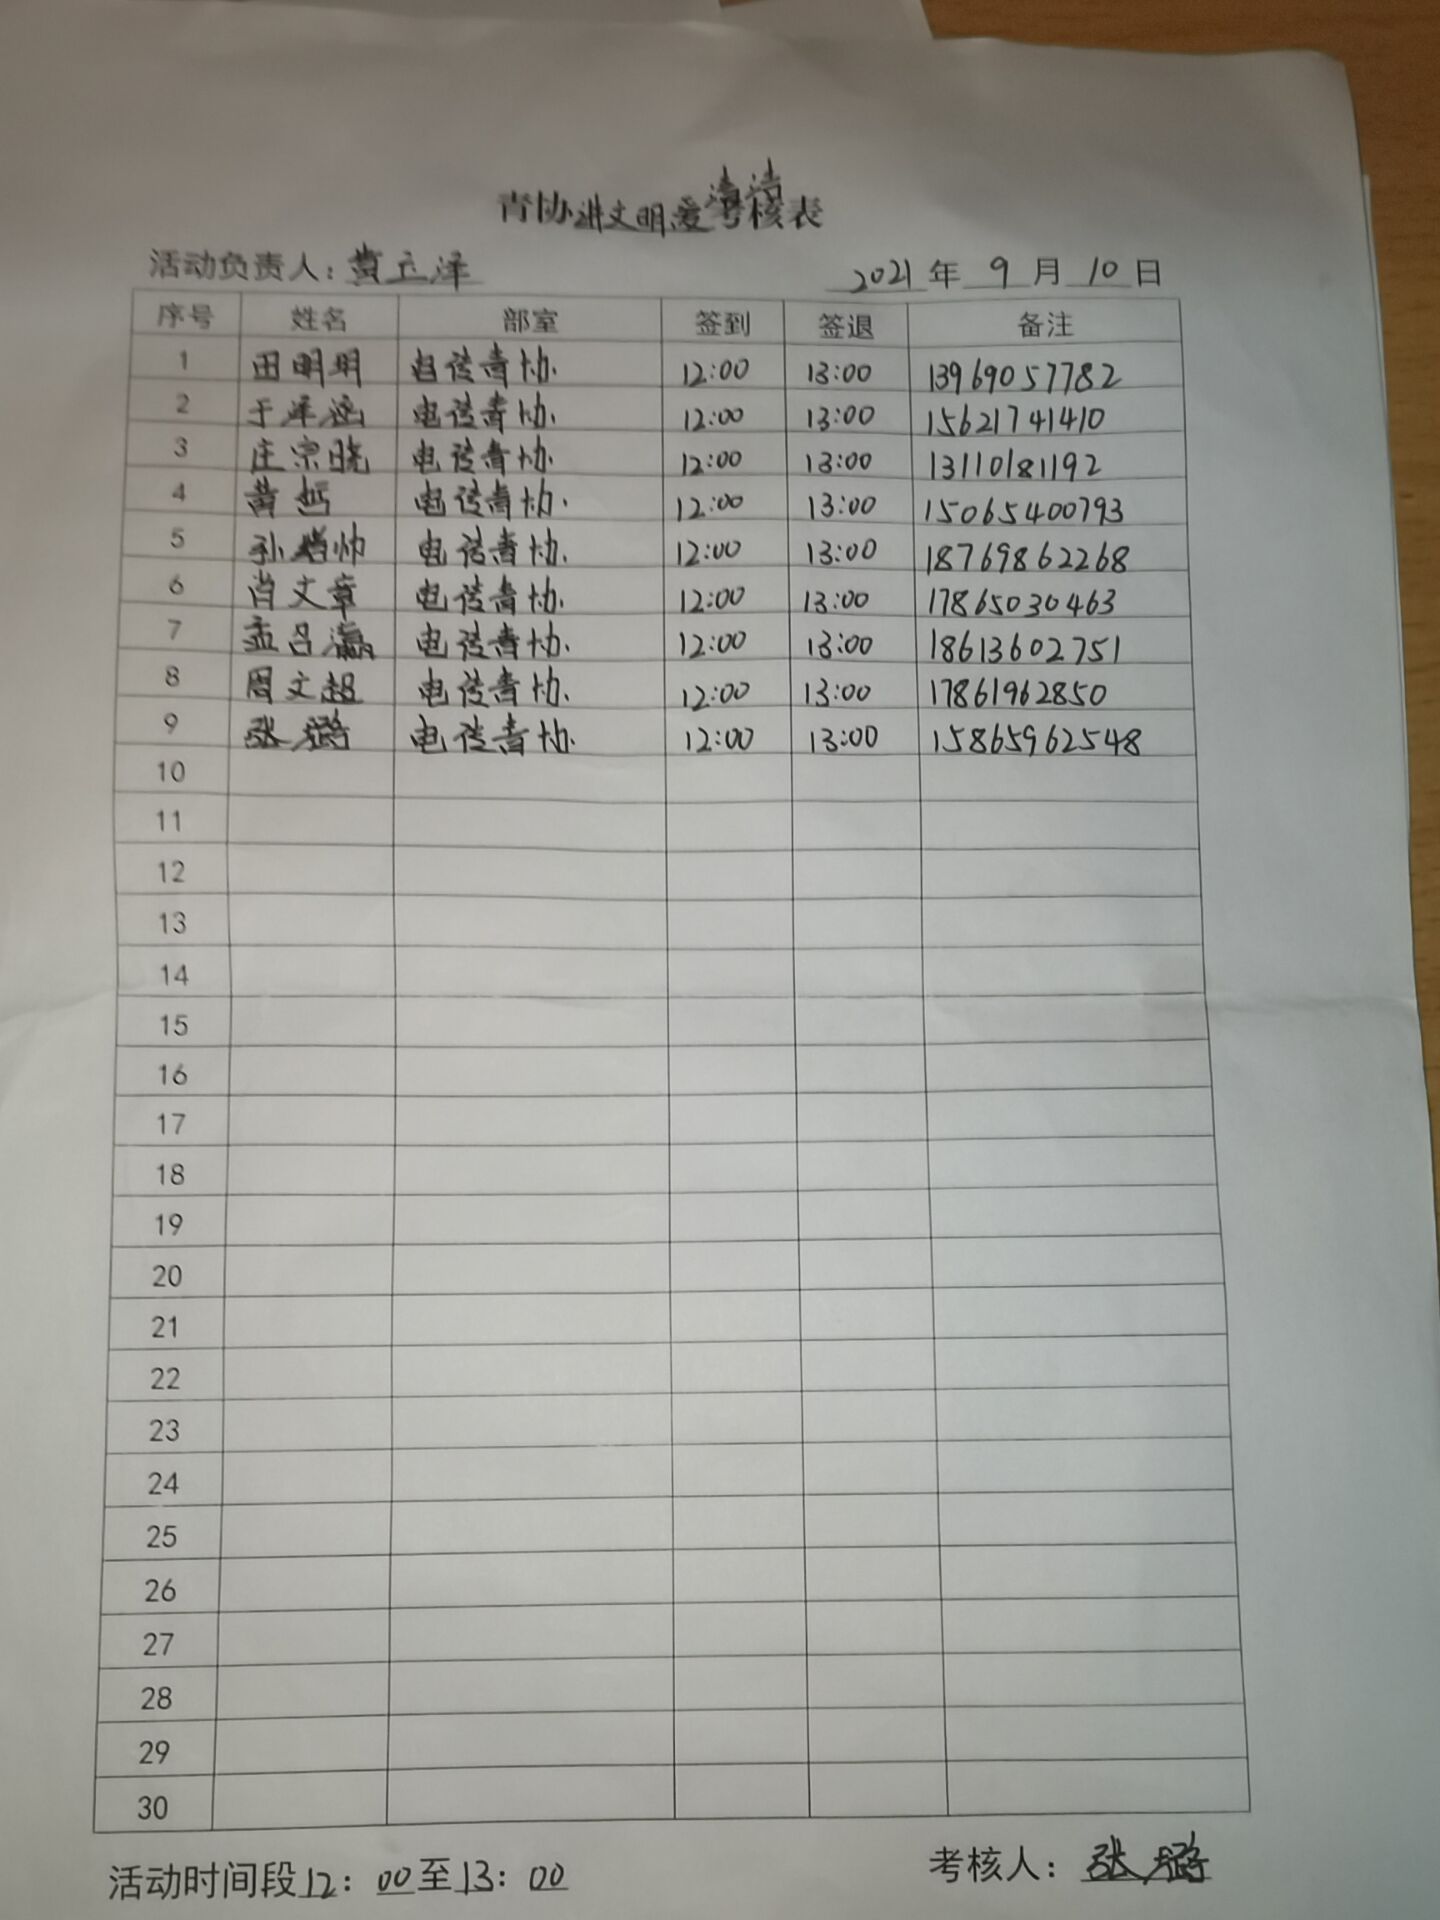 青协讲文明爱清洁考核表
活动负责人：黄立泽 2021年9月10日
序号 姓名 部室 签到 签退 备注
1 田明明 电传青协 12:00 13:00 13969057782
2 于泽涵 电传青协 12:00 13:00 15621741410
3 庄宗晓 电传青协 12:00 13:00 13110181192
4 黄 电传青协 12:00 13:00 15065400793
5 孙 帅 电传青协 12:00 13:00 18769862268
6 肖文章 电传青协 12:00 13:00 17865030463
7 孟吕瀛 电传青协 12:00 13:00 18613602751
8 周文超 电传青协 12:00 13:00 17861962850
9 张璐 电传青协 12:00 13:00 15865962548
10
11
12
13
14
15
16
17
18
19
20
21
22
23
24
25
26
27
28
29
30
活动时间段12：00至13：00 考核人：张璐